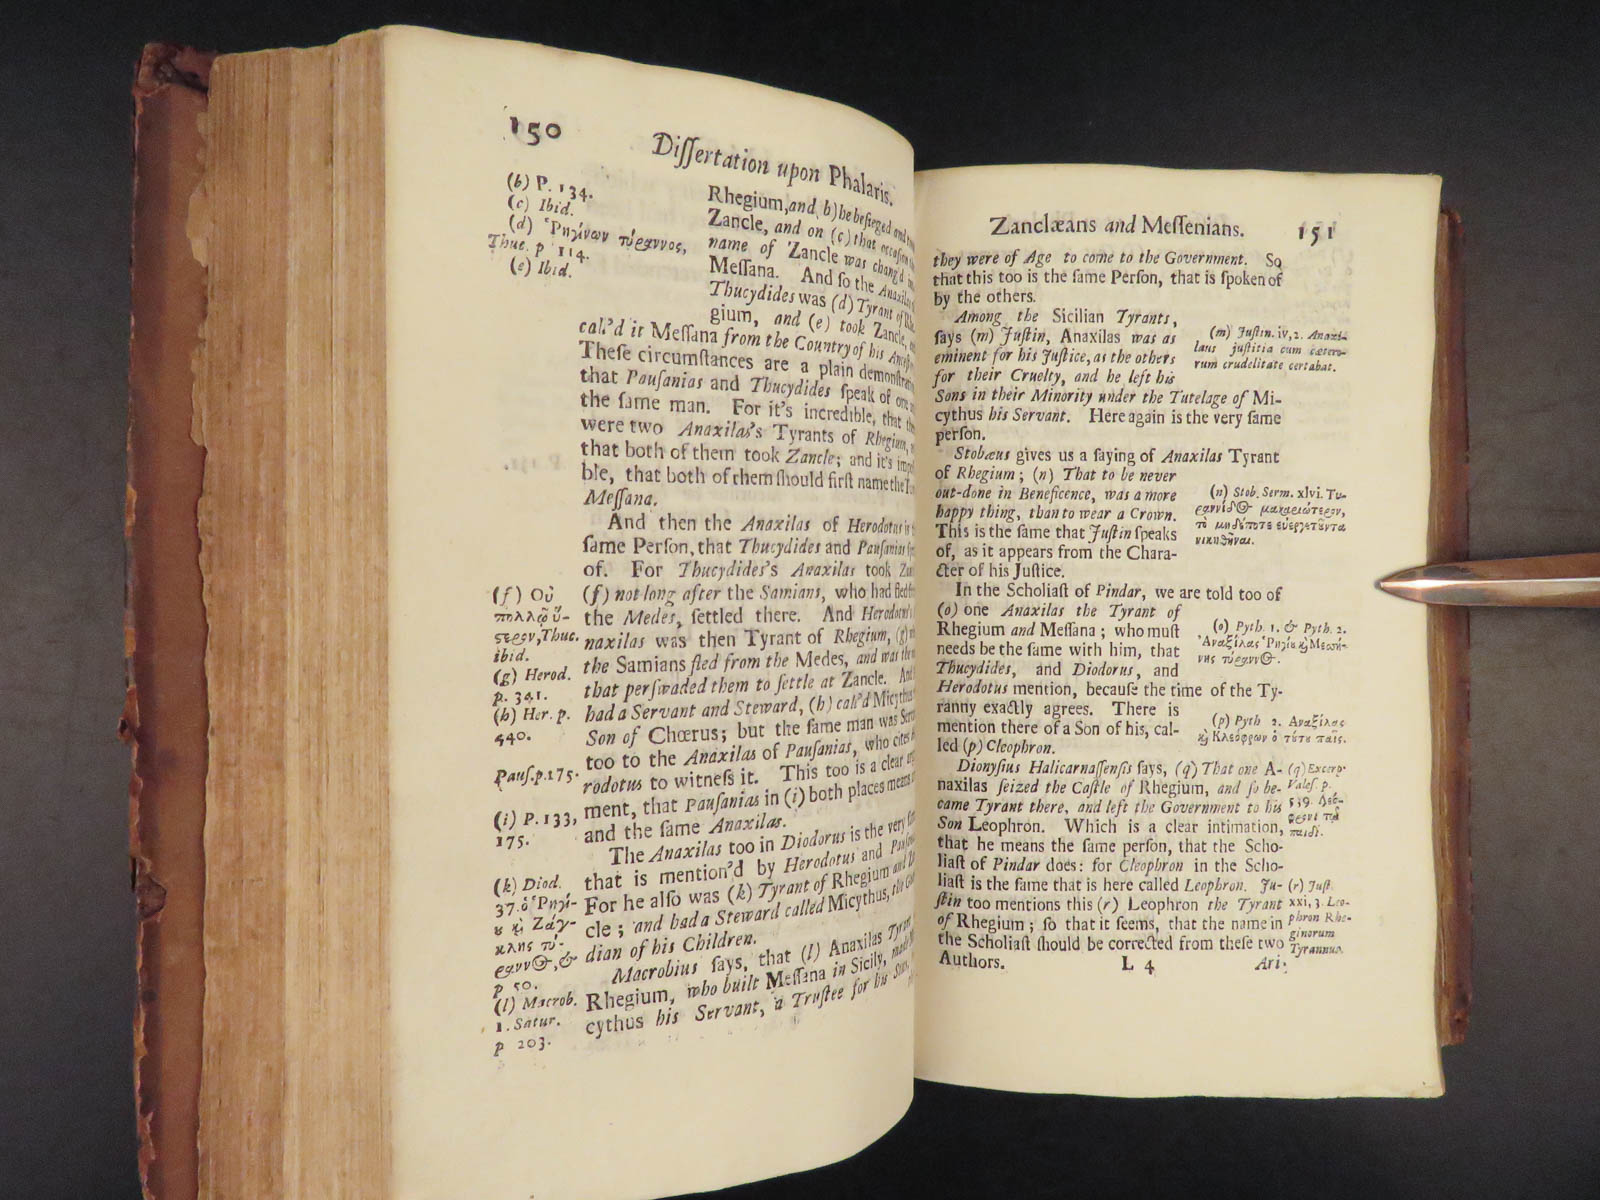 150
Dissertation upon Phalaris.
(b) P. 134.
(c) Ibid.
(d) Ῥηγίνων τύραννος,
Thuc. p 114.
(e) Ibid.
Rhegium, and b) he besieged and
Zancle, and on (c) that occasion
name of Zancle was chang'd
Messana. And so the Anaxilas
Thucydides was (d) Tyrant of
gium, and (e) took Zancle,
call'd it Messana from the Country of his
These circumstances are a plain
that Pausanias and Thucydides speak of one
the same man. For it's incredible, that
were two Anaxilas's Tyrants of Rhegium,
that both of them took Zancle; and it's
ble, that both of them should first name the
Messana.
And then the Anaxilas of Herodotus is
same Person, that Thucydides and Pausanias
of. For Thucydides's Anaxilas took
(f) not long after the Samians, who had fled
the Medes, settled there. And Herodotus's
naxilas was then Tyrant of Rhegium, (g)
the Samians fled from the Medes, and was the
that perswaded them to settle at Zancle. And
had a Servant and Steward, (h) call'd Micythus
Son of Chœrus; but the same man was
too to the Anaxilas of Pausanias, who cites
rodotus to witness it. This too is a clear
ment, that Pausanias in (i) both places means
and the same Anaxilas.
The Anaxilas too in Diodorus is the very
that is mention'd by Herodotus and
For he also was (k) Tyrant of Rhegium and
cle; and had a Steward called Micythus, the
dian of his Children.
Macrobius says, that (l) Anaxilas
Rhegium, who built Messana in Sicily,
cythus his Servant, a Trustee for his
(f) Οὐ
πολλῷ ὕ-
στερον, Thuc.
ibid.
(g) Herod.
p. 341.
(h) Her. p.
440.
Paus. p. 175.
(i) P. 133,
175.
(k) Diod.
37. ὁ Ῥηγί-
ου ϗ Ζάγ-
κλης τύ-
ραννος, &
p 50.
(l) Macrob.
1. Satur.
p 203.
Zanclæans and Messenians. 151
they were of Age to come to the Government. So
that this too is the same Person, that is spoken of
by the others.
Among the Sicilian Tyrants,
says (m) Justin, Anaxilas was as
eminent for his Justice, as the others
for their Cruelty, and he left his
Sons in their Minority under the Tutelage of Mi-
cythus his Servant. Here again is the very same
person.
Stobæus gives us a saying of Anaxilas Tyrant
of Rhegium; (n) That to be never
out-done in Beneficence, was a more
happy thing, than to wear a Crown.
This is the same that Justin speaks
of, as it appears from the Chara-
cter of his Justice.
In the Scholiast of Pindar, we are told too of
(o) one Anaxilas the Tyrant of
Rhegium and Messana; who must
needs be the same with him, that
Thucydides, and Diodorus, and
Herodotus mention, because the time of the Ty-
ranny exactly agrees. There is
mention there of a Son of his, cal-
led (p) Cleophron.
Dionysius Halicarnassensis says, (q) That one A-
naxilas seized the Castle of Rhegium, and so be-
came Tyrant there, and left the Government to his
Son Leophron. Which is a clear intimation,
that he means the same person, that the Scho-
liast of Pindar does: for Cleophron in the Scho-
liast is the same that is here called Leophron. Ju-
stin too mentions this (r) Leophron the Tyrant
of Rhegium; so that it seems, that the name in
the Scholiast should be corrected from these two
Authors.
L 4
Ari-
(m) Justin. iv, 2. Anaxi-
laus justitia cum cætero-
rum crudelitate certabat.
(n) Stob. Serm. xlvi. Τυ-
ραννίδος μακαριώτερον,
τὸ μηδέποτε εὐεργετοῦντα
νικηθῆναι.
(o) Pyth. 1. & Pyth. 2.
Ἀναξίλας Ῥηγίου ϗ Μεσσή-
νης τύραννος.
(p) Pyth 2. Ἀναξίλας
ϗ Κλεόφρων ὁ τούτου παῖς.
(q) Excerp.
Vales. p.
539. Λεό-
φρονι τῷ
παιδί.
(r) Just.
xxi, 3. Leo-
phron Rhe-
ginorum
Tyrannus.